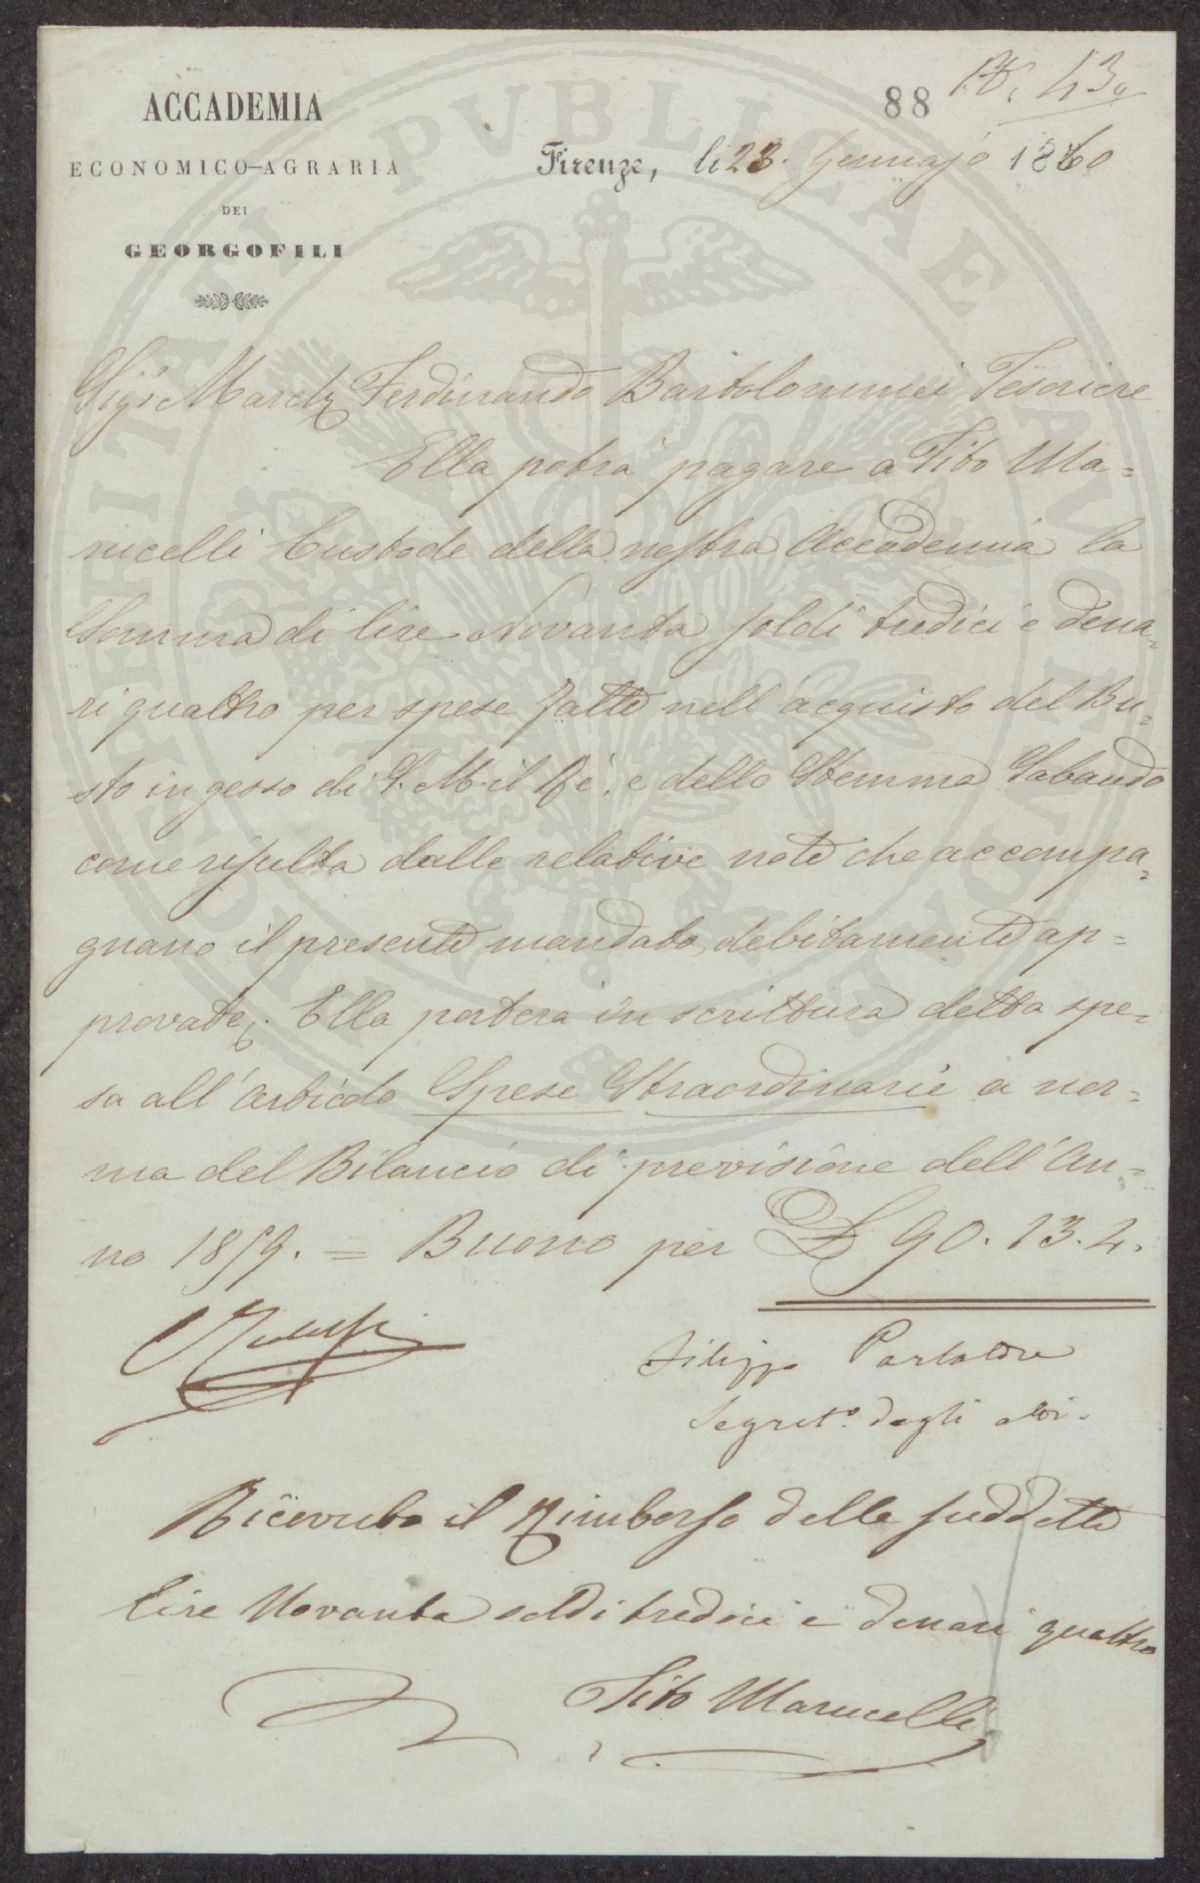 88
N.º 43
ACCADEMIA
ECONOMICO-AGRARIA
DEI
GEORGOFILI
Firenze, li 23. Gennajo 1860
Sigr March. Ferdinando Bartolommei Tesoriere
Ella potrà pagare a Tito Ma=
rucelli Custode della nostra Accademia la
Somma di lire Novanta soldi tredici e dena=
ri quattro per spese fatte nell'acquisto del Bu=
sto in gesso di S. M. il Ré, e dello Stemma Sabaudo
come risulta dalle relative note che accompa=
gnano il presente mandato, debitamente ap=
provate. Ella porterà in scrittura detta spe=
sa all'Articolo Spese Straordinarie a nor=
ma del Bilancio di previsione dell'An=
no 1859. = Buono per £ 90. 13. 4.
Ridolfi
Filippo Parlatore
Segret.º degli Atti.
Ricevuto il Rimborso delle suddette
lire Novanta soldi tredici e denari quattro
Tito Marucelli